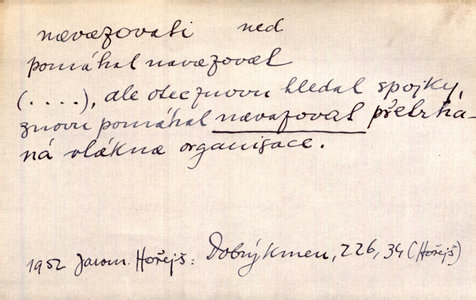 navazovati ned
pomáhal navazoval
(....), ale otec znovu hledal spojky,
znovu pomáhal navazoval přetrha-
ná vlákna organisace.
1952 Jarom. Hořejš: Dobrý kmen, 226, 34 (Hořejš)